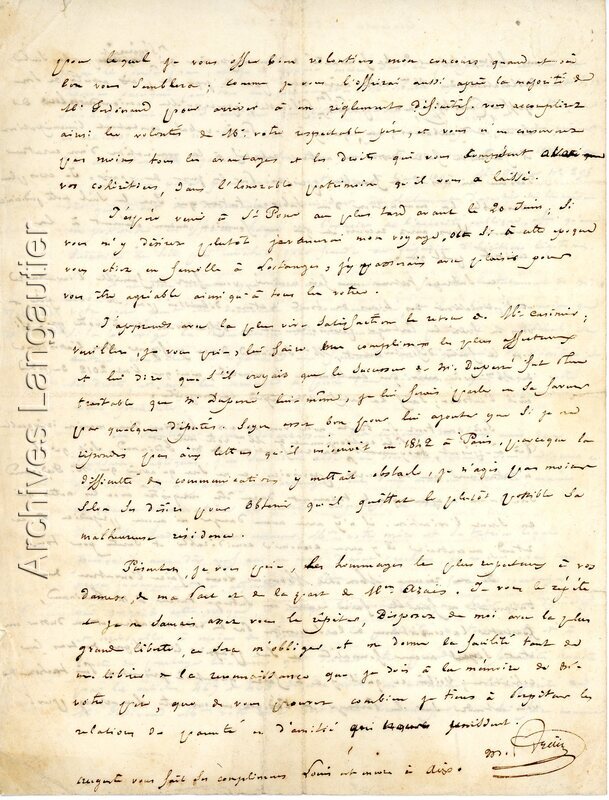 pour lequel je vous offre bien volontiers mon concours quand et où
bon vous semblera ; comme je vous l'offrirai aussi après la majorité de
Mr Ferdinand pour arriver à un règlement définitif. vous accomplirez
ainsi les volontés de Mr votre respectable père, et vous n'en conserverez
pas moins tous les avantages et les droits qui vous compètent
vos cohéritiers, dans l'honorable patrimoine qu'il vous a laissé.
J'espère venir à St Pons au plus tard avant le 20 Juin ; Si
vous m'y désirez plutôt j'avancerai mon voyage, Si à cette époque
vous étiez en famille à j'y passerais avec plaisir pour
vous être agréable ainsi qu'à tous les vôtres.
J'apprends avec la plus vive satisfaction le retour de Mr Casimir ;
veuillez, je vous prie, lui faire mes complimens les plus affectueux
et lui dire que s'il croyait que le successeur de Mr Duperré fut plus
traitable que Mr Duperré lui-même, je lui ferais parler en sa faveur
par quelques députés. Soyez assez bon pour lui ajouter que si je ne
répondis pas aux lettres qu'il m'écrivit en 1842 à Paris, parceque la
difficulté des communications y mettait obstacle, je n'agis pas moins
selon ses désirs pour obtenir qu'il quittât le plutôt possible sa
malheureuse résidence.
Présentez, je vous prie, les hommages les plus respectueux à vos
dames, de ma part et de la part de Mme Azaïs. Je vous le répète
et je ne saurais assez vous le répéter, Disposez de moi avec la plus
grande liberté, ce sera m'obliger et me donner la facilité tant de
me libérer de la reconnaissance que je dois à la mémoire de Mr
votre père, que de vous prouver combien je tiens à perpétuer les
relations de parenté et d'amitié qui nous unissent.
Auguste vous fait ses complimens Louis est encore à Aix.
Archives Langautier